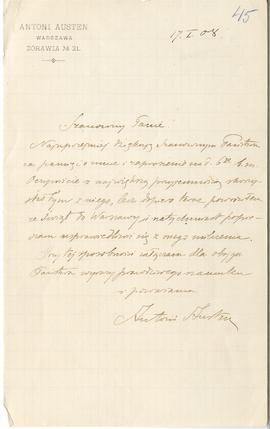 45
ANTONI AUSTEN
WARSZAWA
ŻÓRAWIA № 21.
17.I 08
Szanowny Panie
Najuprzejmiej dziękuję Szanownym Państwu
za pamięć o mnie i zaproszenie na d. 6º b.m.
Oczywiście z największą przyjemnością
z niego, lecz dopiero teraz powróciłem
ze świąt do Warszawy i natychmiast
usprawiedliwić się z mego milczenia.
Przy tej sposobności załączam dla obojga
Państwa wyrazy prawdziwego szacunku
i poważania
Antoni Austen